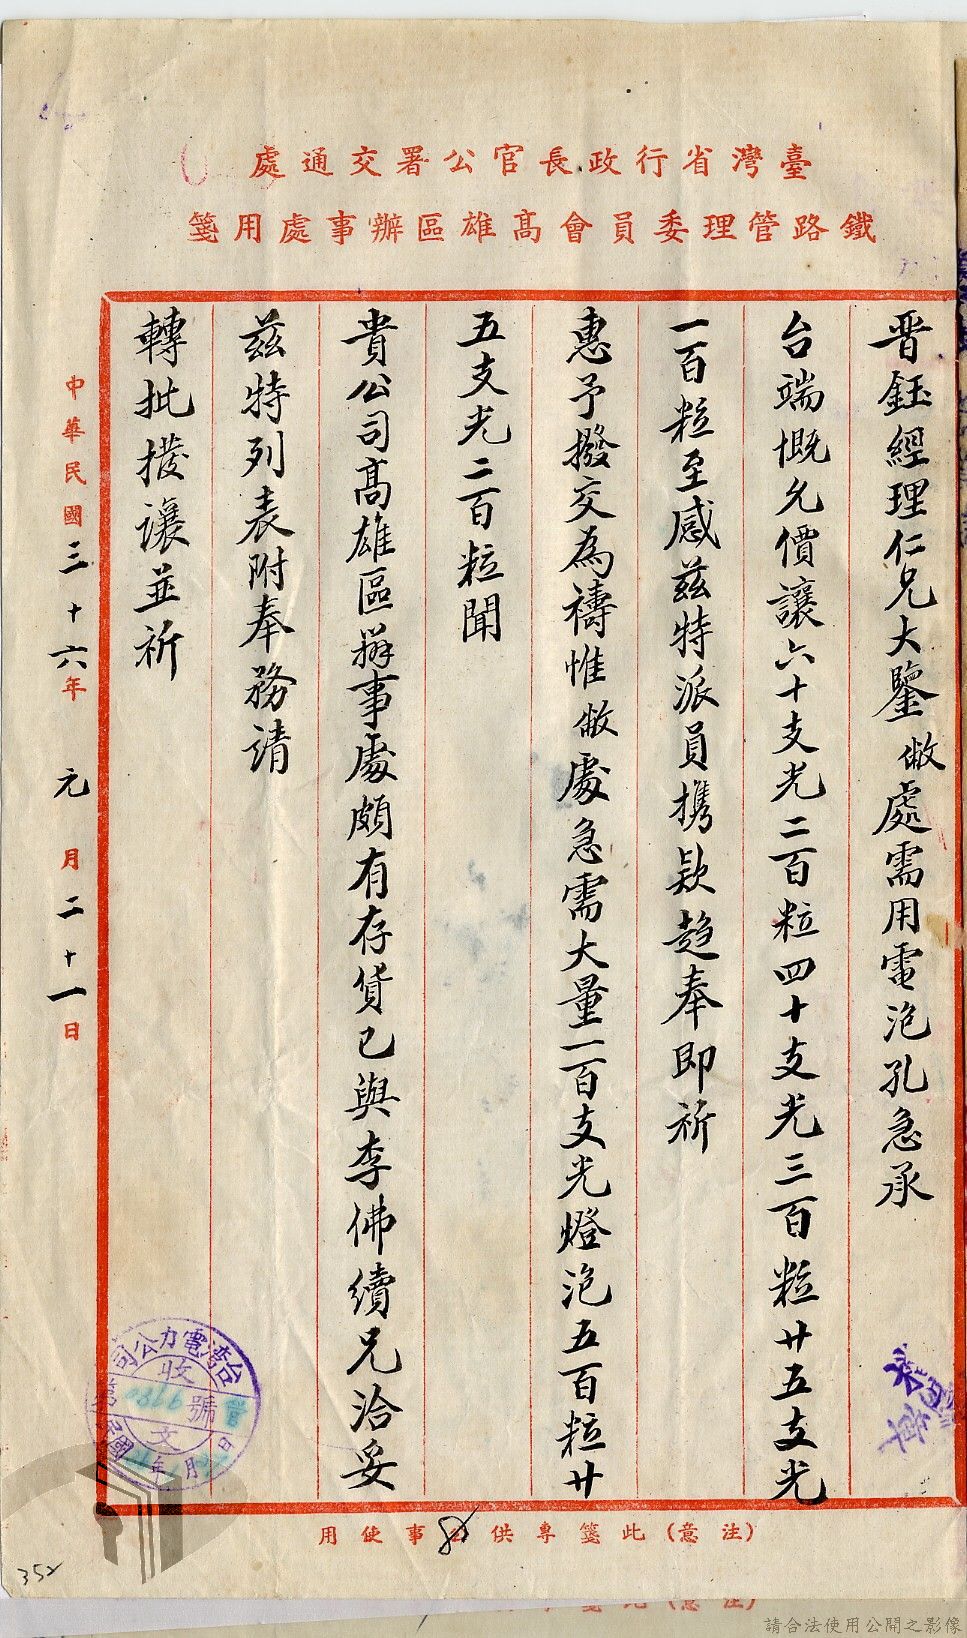 臺灣省行政長官公署交通處
鐵路管理委員會高雄區辦事處用箋
晋鈺經理仁兄大鑒敝處需用電泡孔急承
台端慨允價讓六十支光二百粒四十支光三百粒廿五支光
一百粒至感茲特派員携欵趋奉即祈
惠予撥交為禱惟敝處急需大量一百支光燈泡五百粒廿
五支光二百粒聞
貴公司高雄區辦事處頗有存貨已與李佛續兄洽妥
茲特列表附奉務請
轉批撥讓並祈
中華民國三十六年元月二十一日
台灣電力公司
收
號
文
年月日
(注意)此箋專供公事使用
352
(注意)
請合法使用公開之影像